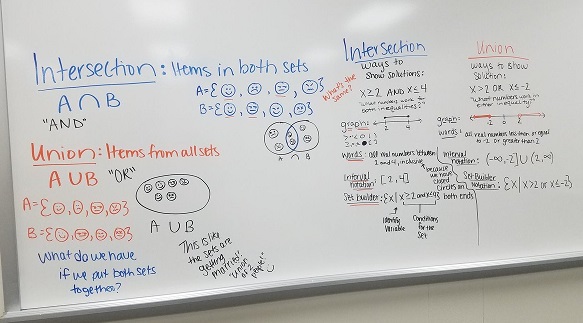 Intersection: Items in both sets
A ∩ B
"AND"
A={☺, ☹, ☺, ☺}
B={☺, ☺, ☺, ☺}
What's the same?
A ∩ B
Union: Items from all sets
A ∪ B "OR"
A={☺, ☺, ☺, ☹}
B={☺, ☺, ☺, ☹}
A ∪ B
What do we have
if we put both sets
together?
This is like
the sets are
getting
married!
"union
of 2
people!"
Intersection
ways to
show solutions:
x≥2 AND x≤4
"What numbers work in
both inequalities?"
graph:
2 4
words: all real numbers between
2 and 4, inclusive
because
we have
closed
circles on
both ends
Interval
notation: [2,4]
Set builder: {x|x≥2 and x≤4}
Identify
Variable
Conditions
for the
Set
Union
ways to show
solution:
x>2 OR x≤-2
"What numbers work in
either inequality?"
graph:
-2 0 2
words: all real numbers less than or equal
to -2 or greater than 2
Interval
notation: (-∞,-2]∪(2,∞)
Set Builder
Notation: {x|x>2 or x≤-2}